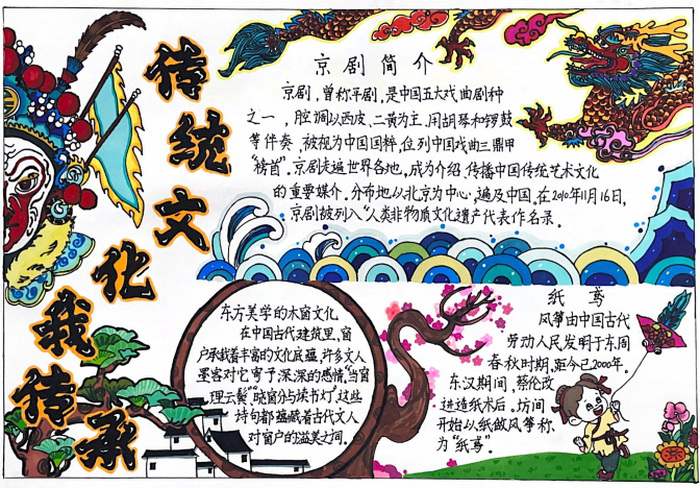 传统文化我传承
京剧简介
京剧，曾称平剧，是中国五大戏曲剧种
之一，腔调以西皮、二黄为主，用胡琴和锣鼓
等伴奏，被视为中国国粹，位列中国戏曲三鼎甲
“榜首”。京剧走遍世界各地，成为介绍、传播中国传统艺术文化
的重要媒介。分布地以北京为中心，遍及中国。在2010年11月16日，
京剧被列入“人类非物质文化遗产代表作名录。
东方美学的木窗文化
在中国古代建筑里，窗
户承载着丰富的文化底蕴，许多文人
墨客对它寄予深深的感情，“当窗
理云鬓”“晓窗分与读书灯”，这些
诗句都蕴藏着古代文人
对窗户的溢美之词。
纸鸢
风筝由中国古代
劳动人民发明于东周
春秋时期，距今已2000年。
东汉期间，蔡伦改
进造纸术后。坊间
开始以纸做风筝称
为“纸鸢”。